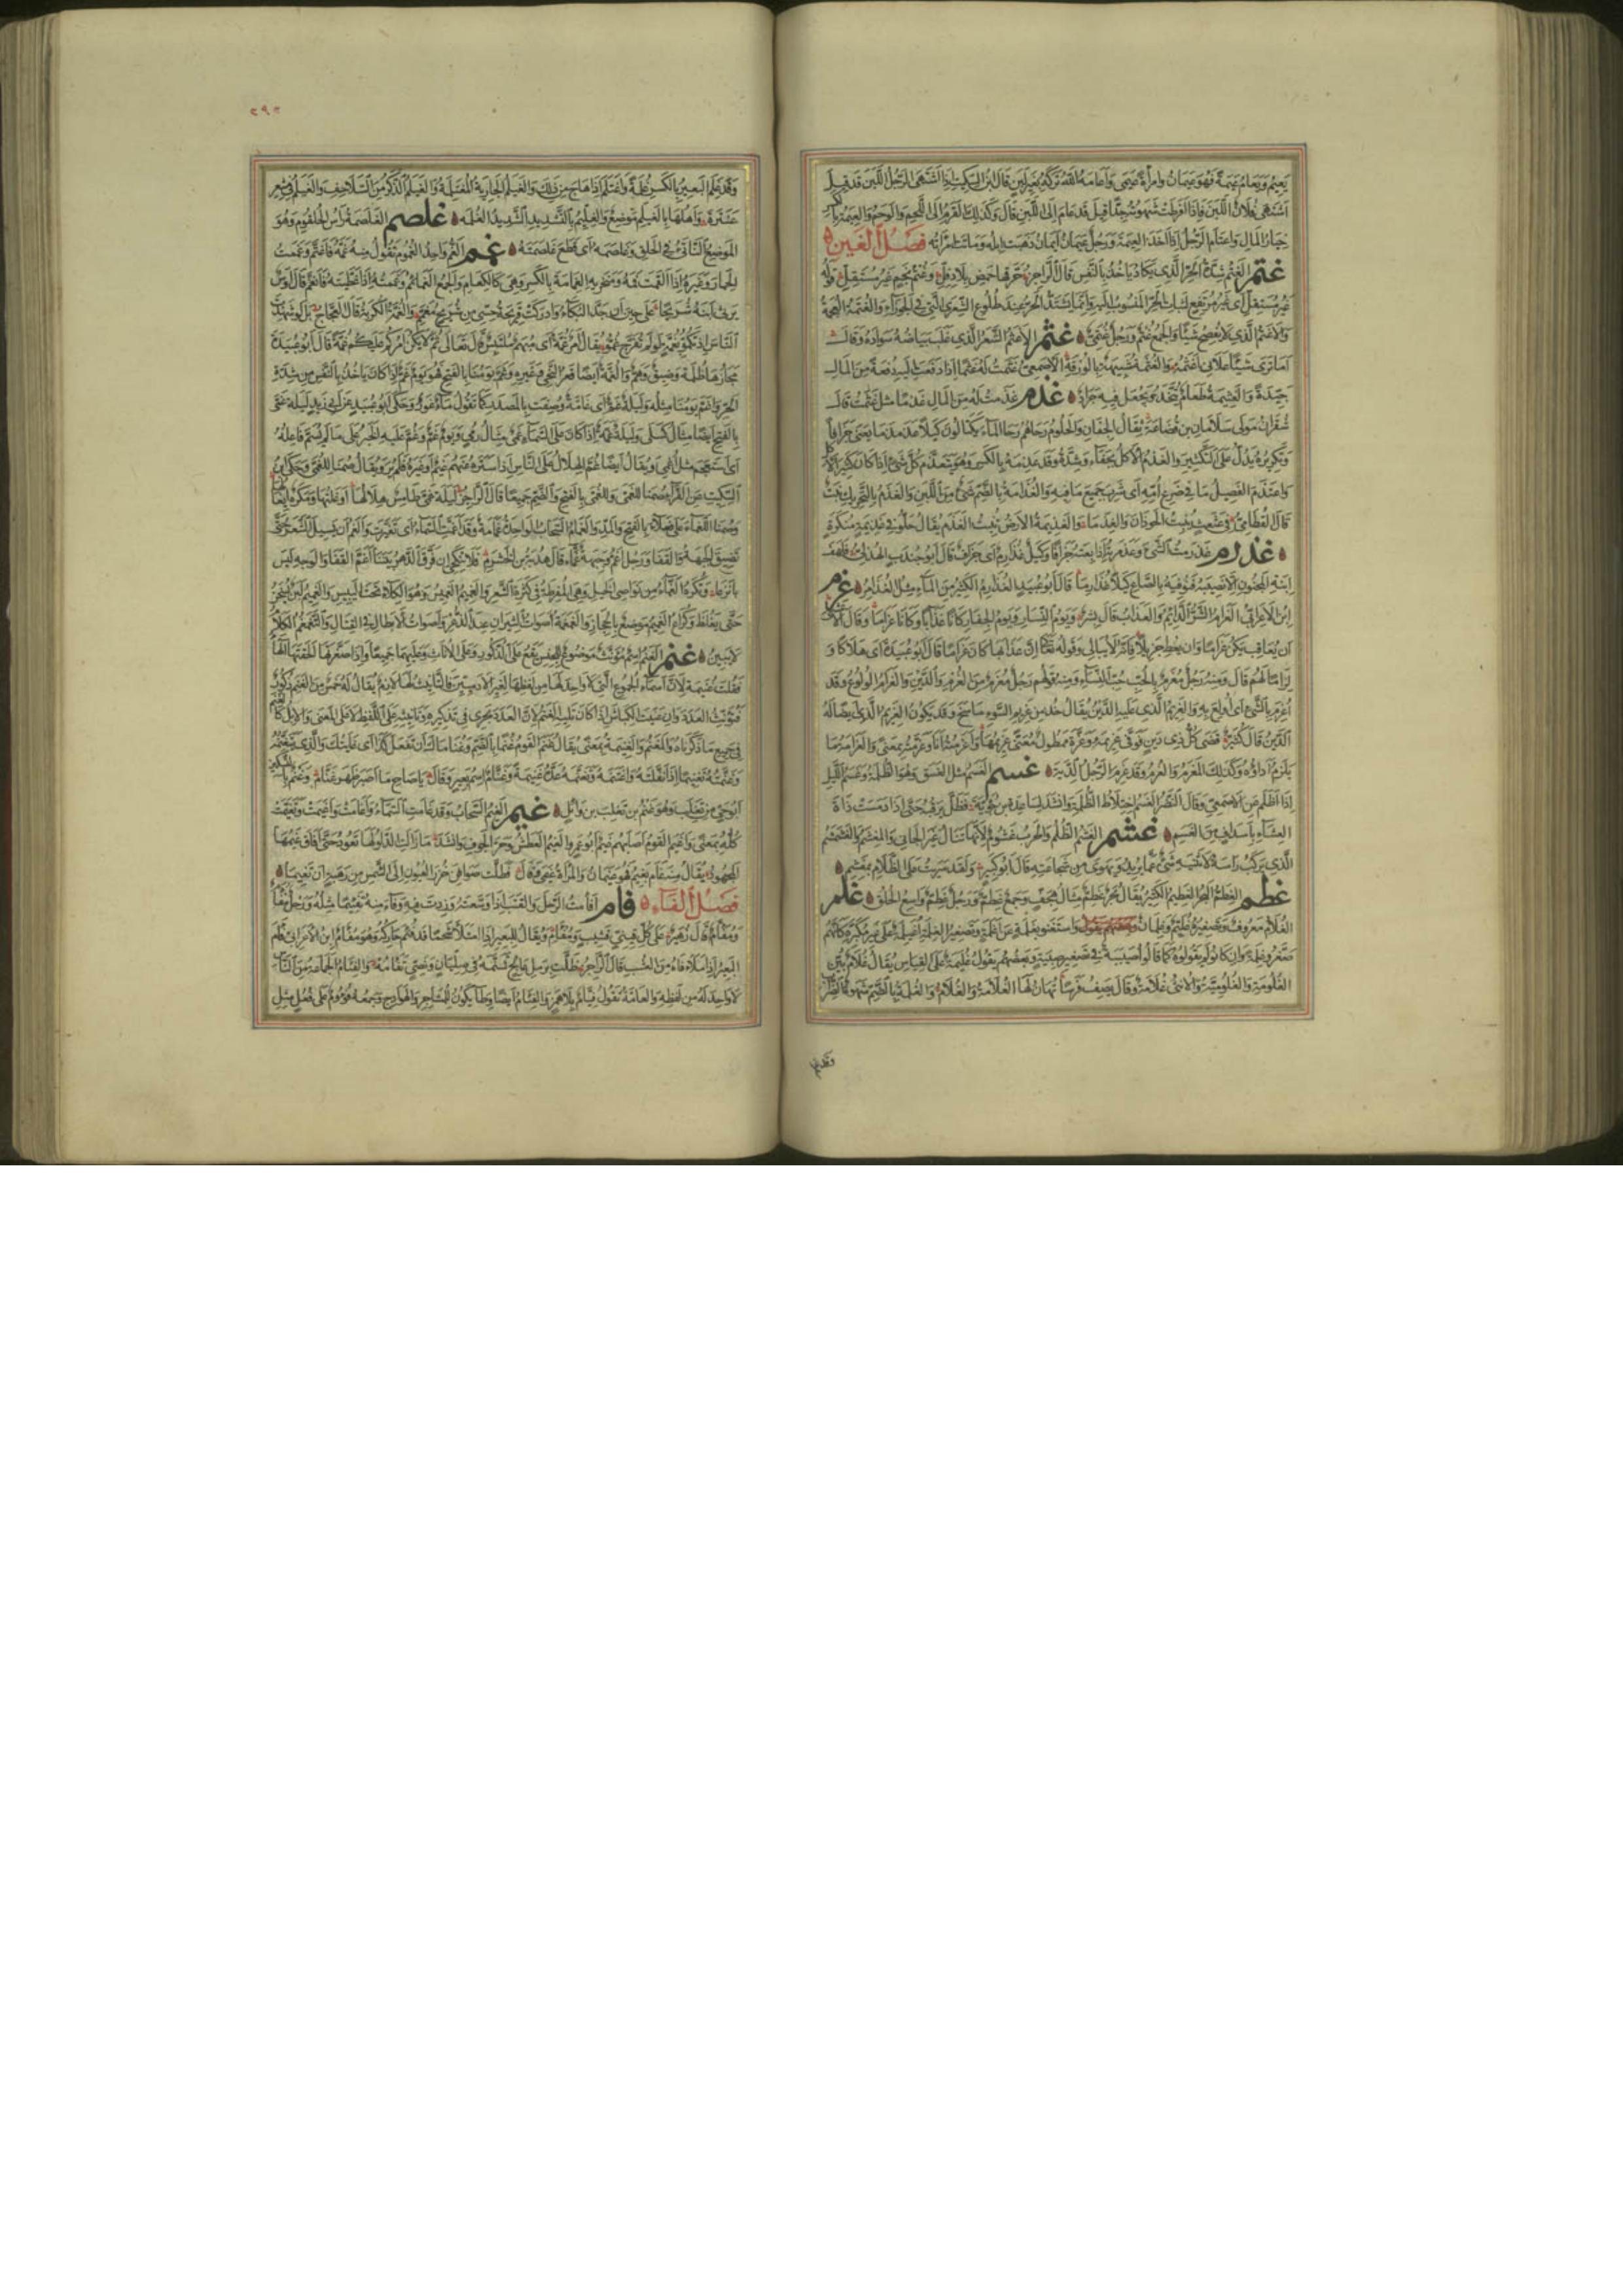 يعيم ويعام عيمة فهو عيمان وامرأة عيمى وأعامه الله تركه بغير لبن قال ابن السكيت إذا اشتهى الرجل اللبن قد قيل
اشتهى فلان اللبن فإذا أفرطت شهوته جدا قيل قد عام إلى اللبن قال وكذلك القرم إلى اللحم والوحم والعيمة بالكسر
خيار المال واعتام الرجل إذا أخذ العيمة ورجل عيمان أيمان ذهبت إبله وماتت امرأته فصل الغين
غتم الغتم شدة الحر الذي يكاد يأخذ بالنفس قال الراجز حرقها حمض بلاد فل وغتم نجم غير مستقل قوله
غير مستقل أي غير مرتفع لثبات الحر المنسوب إليه وإنما يشتد الحر عند طلوع الشعرى التي في الجوزاء والغتمة العجمة
والأغتم الذي لا يفصح شيئا والجمع غتم ورجل غتمي غثم الأغثم الشعر الذي غلب بياضه سواده وقال
أما ترى شيبا علاني أغثمه والغثمة شبيهة بالورقة الأصمعي غثمت له غثما إذا دفعت إليه دفعة من المال
جيدة والغثيمة طعام يتخذ ويجعل فيه جراد غذم غذمت له من المال غذما مثل غثمت قال
شقران مولى سلامان بن قضاعة يقال الجفان والحلوم رحاهم رحا الماء يكتالون كيلا غذمذما يعني جزافا
وتكريره يدل على التكثير والغذم الأكل بجفاء وشدة وقد غذمه بالكسر وهو يتغذم كل شيء إذا كان كثير الأكل
واغتذم الفصيل ما في ضرع أمه أي شرب جميع ما فيه والغذامة بالضم شيء من اللبن والغذم بالتحريك نبت
قال القطامي في عثعث ينبت الحوذان والغذما والغذيمة الأرض تنبت الغذم يقال حلوا في غذيمة منكرة
غذرم غذرمت الشيء وغذمرته إذا بعته جزافا وكيل غذارم أي جزاف قال أبو جندب الهذلي فلهف
ابنة المجنون ألا تصيبه فتوفيه بالصاع كيلا غذارما قال أبو عبيد الغذارم الكثير من الماء مثل الغذامر غرم
ابن الأعرابي الغرام الشر الدائم والعذاب قال بشر ويوم النسار ويوم الجفار كانا عذابا وكانا غراما وقال الأعشى
إن يعاقب يكن غراما وإن يعط جزيلا فإنه لا يبالي وقوله تعالى إن عذابها كان غراما قال أبو عبيدة أي هلاكا و
لزاما لهم قال ومنه رجل مغرم بالحب حب النساء ومنه قولهم رجل مغرم من الغرم والدين والغرام الولوع وقد
أغرم بالشيء أي أولع به والغريم الذي عليه الدين يقال خذ من غريم السوء ما سنح وقد يكون الغريم الذي أيضا له
الدين قال كثير قضى كل ذي دين فوفى غريمه وعزة ممطول معنى غريمها وأغرمته أنا وغرمته بمعنى والغرامة ما
يلزم أداؤه وكذلك المغرم والغرم وقد غرم الرجل الدية غسم الغسم مثل الغسق وهو الظلمة وغسم الليل
إذا أظلم عن الأصمعي وقال النضر الغسم اختلاط الظلمة وأنشد لساعدة بن جؤية فظل يرقبه حتى إذا دمست ذات
العشاء بأسداف من الغسم غشم الغشم الظلم والحرب غشوم لأنها تنال غير الجاني والمغشم والغشمشم
الذي يركب رأسه لا يثنيه شيء عما يريد ويهوى من شجاعته قال أبو كبير ولقد سريت على الظلام بمغشم
غطم الغطم البحر العظيم الكثير يقال بحر غطم مثال هجف وجمع غطم ورجل غطم واسع الخلق غلم
الغلام معروف وتصغيره غليم وغلمان واستغنوا بغلمة عن أغلمة وتصغير الغلمة أغيلمة على غير مكبره كأنهم
صغروا أغلمة وإن كانوا لم يقولوه كما قالوا أصيبية في تصغير صبية وبعضهم يقول غليمة على القياس يقال غلام بين
الغلومة والغلومية والأنثى غلامة وقال يصف فرسا تهان لها الغلامة والغلام والغلمة بالضم شهوة الضراب
وقد غلم
٢٩٢
وقد غلم البعير بالكسر غلمة واغتلم إذا هاج من ذلك والغيلم الجارية المغتلمة والغيلم الذكر من السلاحف والغيلم في شعر
عنترة وأهلها بالغيلم موضع والغليم بالتشديد الشديد الغلمة غلصم الغلصمة رأس الحلقوم وهو
الموضع الناتئ في الحلق وغلصمه أي قطع غلصمته غمم الغم واحد الغموم تقول منه غمه فاغتم وغممت
الحمار وغيره إذا ألقمت فمه ومنخريه الغمامة بالكسر وهي كالكعام والجمع الغمائم وغممته إذا غطيته فانغم قال أوس
يرثي ابنه شريحا على حين أن جد الذكاء وأدركت قريحة حسي من شريح مغمم والغمة الكربة قال العجاج بل لو شهدت
الناس إذ تكموا بغمة لو لم تفرج غموا يقال أمر غمة أي مبهم ملتبس قال تعالى ثم لا يكن أمركم عليكم غمة قال أبو عبيدة
مجازها ظلمة وضيق وهم والغمة أيضا قعر النحي وغيره وغم يومنا بالفتح فهو يوم غم إذا كان يأخذ بالنفس من شدة
الحر وأغم يومنا مثله وليلة غم أي غامة وصفت بالمصدر كما تقول ماء غور وحكى أبو عبيد عن أبي زيد ليلة غمى
بالفتح أيضا مثال كسلى وليلة غمة إذا كان على السماء غمي مثال رمي ويوم غم وغم عليه الخبر على ما لم يسم فاعله
أي استعجم مثل أغمي ويقال أيضا غم الهلال على الناس إذا ستره عنهم غيم أو غيره فلم ير ويقال صمنا للغمى وحكى ابن
السكيت عن الفراء صمنا للغمى وللغمى بالفتح والضم جميعا قال الراجز ليلة غمى طامس هلالها أوغلتها ومكره إيغالها
وصمنا للغماء على فعلاء بالفتح والمد والغمام السحاب الواحدة غمامة وقد أغمت السماء أي تغيرت والغمم أن يسيل الشعر حتى
تضيق الجبهة والقفا ورجل أغم وجبهة غماء قال هدبة بن الخشرم فلا تنكحي إن فرق الدهر بيننا أغم القفا والوجه ليس
بأنزعا وتكره الغماء من نواصي الخيل وهي المفرطة في كثرة الشعر والغميم الغميس وهو الكلأ تحت اليبيس والغميم لبن يسخن
حتى يغلظ وكراع الغميم موضع بالحجاز والغمغمة أصوات الثيران عند الذعر وأصوات الأبطال في القتال والتغمغم الكلام
لا يبين غنم الغنم اسم مؤنث موضوع للجنس يقع على الذكور وعلى الإناث وعليهما جميعا وإذا صغرتها ألحقتها الهاء
فقلت غنيمة لأن أسماء الجموع التي لا واحد لها من لفظها لغير الآدميين فالتأنيث لها لازم يقال له خمس من الغنم ذكور
فتؤنث العدد وإن عنيت الكباش إذا كان يليه الغنم لأن العدد يجري في تذكيره وتأنيثه على اللفظ لا على المعنى والإبل كالغنم
في جميع ما ذكرناه والمغنم والغنيمة بمعنى يقال غنم القوم غنما بالضم وغناماك أن تفعل كذا أي غايتك والذي تتغنمه
وغنمته تغنيما إذا نفلته واغتنمه وتغنمه عده غنيمة وغنام اسم بعير وقال يا صاح ما أصبر ظهر غنام وغنم بالتسكين
أبو حي من تغلب وهو غنم بن تغلب بن وائل غيم الغيم السحاب وقد غامت السماء وأغامت وأغيمت وتغيمت
كله بمعنى وأغيم القوم أصابهم غيم أبو عمرو الغيم العطش وحر الجوف وأنشد ما زالت الدلو لها تعود حتى أفاق غيمها
المجهود يقال منه غام يغيم فهو غيمان والمرأة غيمى قال فظلت صوافن خزر العيون إلى الشمس من رهبة أن تغيما
فصل الفاء فأم أفأمت الرحل والقتب إذا وسعته وزدت فيه وفأمه تفئيما مثله ورحل مفأم
ومفأم قال زهير على كل قيني قشيب ومفأم ويقال للبعير إذا امتلأ شحما قد فئم حاركه وهو مفأم ابن الأعرابي فأم
البعير إذا ملأ فاه من العشب قال الراجز ظلت برمل عالج تسنمه في صليان ونصي تفأمه والفئام الجماعة من الناس
لا واحد له من لفظه والعامة تقول فيام بلا همز والفئام أيضا وطاء يكون للمشاجر والهوادج وجمعه فؤوم على فعل مثل